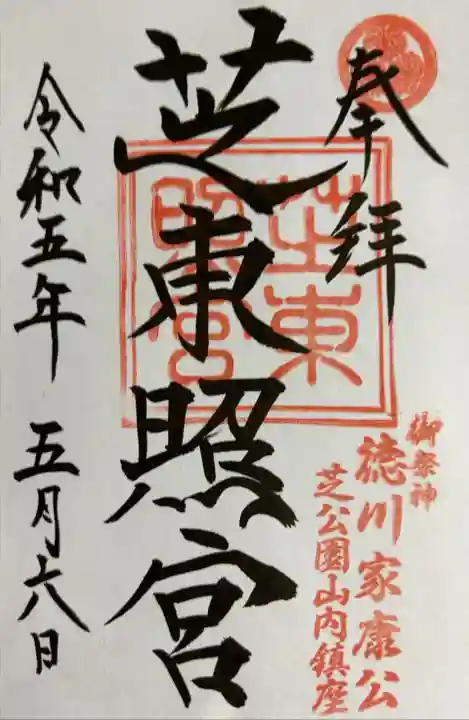 奉拝
御祭神
徳川家康公
芝公園山内鎮座
芝東照宮
芝東
照宮
令和五年 五月六日